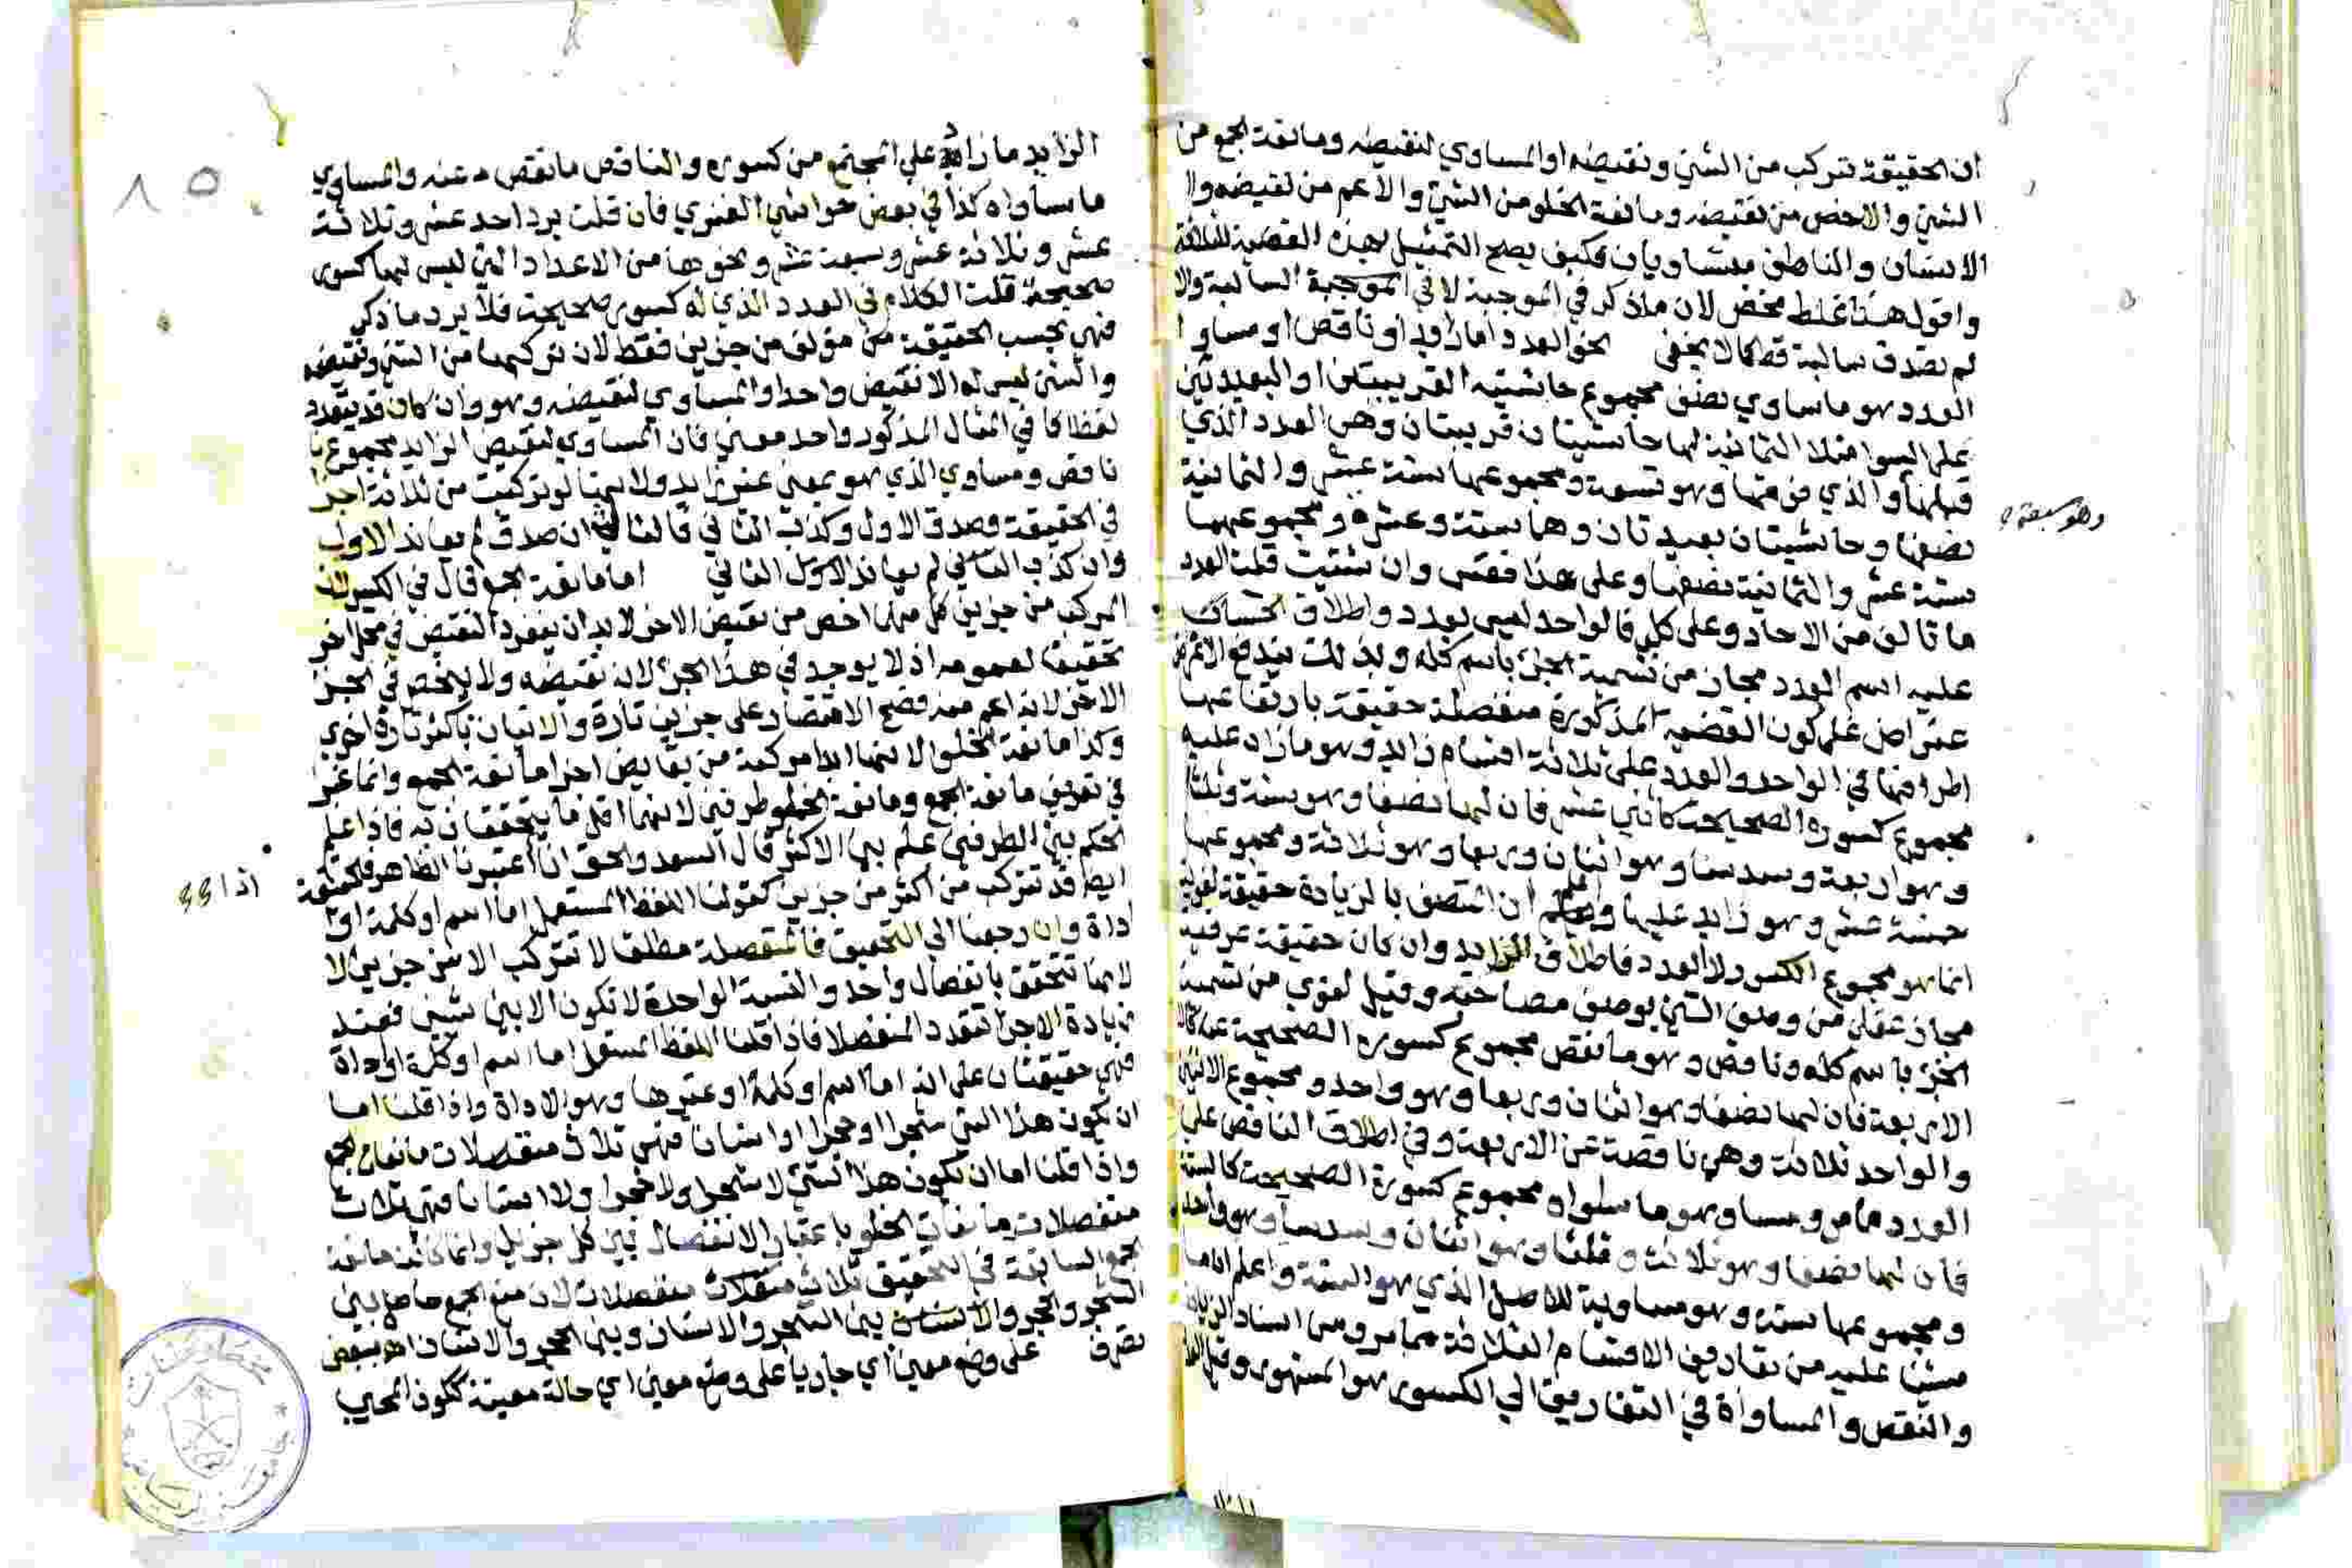 ان الحقيقة تتركب من الشيئ ونقيضه او المساوي لنقيضه ومانعة الجمع من
الشيئ والاخص من نقيضه ومانعة الخلو من الشيئ والاعم من نقيضه والا
الانسان والناطق متساويان فكيف يصح التمثيل لهذه القضية
واقول هذا غلط محض لان ما ذكر في الموجبة لا في السالبة والا
لم تصدق سالبة قط كما لا يخفى نحو العدد اما زايد او ناقص او مساو
العدد هو ما ساوي نصف مجموع حاشيتيه القريبتين او البعيدتين
على السوا مثلا الثمانية لها حاشيتان قريبتان وهي العدد الذي
قبلها والذي فوقها وهو تسعة ومجموعهما ستة عشر والثمانية
وهو سبعة
نصفها وحاشيتان بعيدتان وهما ستة وعشرة ومجموعهما
ستة عشر والثمانية نصفها وعلى هذا فقس وان شئت قلت العدد
ما تالف من الاحاد وعلى كل فالواحد ليس بعدد واطلاق الحساب
عليه اسم العدد مجاز من تسمية الجزء باسم كله وبذلك يندفع
عتراض على كون القضية المذكورة منفصلة حقيقة بارتفاعها
اطرافها في الواحد والعدد على ثلاثة اقسام زايد وهو ما زاد عليه
مجموع كسوره الصحيحة كاثني عشر فان لها نصفا وهو ستة وثلثا
وهو اربعة وسدسا وهو اثنان وربعا وهو ثلاثة ومجموعها
خمسة عشر وهو زايد عليها واعلم ان المتصف بالزيادة حقيقة
انما هو مجموع الكسور لا العدد فاطلاق الزايد وان كان حقيقة عرفية
مجاز عقلي من وصف الشي بوصف مصاحبه وقيل لغوي من تسمية
الجزء باسم كله وناقص وهو ما نقص مجموع كسوره الصحيحة عنه
الاربعة فان لها نصفا وهو اثنان وربعا وهو واحد ومجموع الاثنين
والواحد ثلاثة وهي ناقصة عن الاربعة وفي اطلاق الناقص على
العدد ما مر ومساو وهو ما ساواه مجموع كسوره الصحيحة كالستة
فان لها نصفا وهو ثلاثة وثلثا وهو اثنان وسدسا وهو واحد
ومجموعها ستة وهو مساوية للاصل الذي هو الستة واعلم ان ما
مشينا عليه من تعاريف الاقسام الثلاثة مما مر ومن اسناد الزيادة
والنقص والمساواة في التعاريف الي الكسور هو المشهور وقيل
الزايد ما زاد على المجتمع من كسوره والناقص ما نقص عنه والمساوي
ما ساواه كذا في بعض حواشي الفنري فان قلت يرد احد عشر وثلاثة
عشر وثلاثة عشر وسبعة عشر ونحوها من الاعداد التي ليس لها كسور
صحيحة قلت الكلام في العدد الذي له كسور صحيحة فلا يرد ما ذكر
فهي بحسب الحقيقة من مؤلف من جزين فقط لان تركبها من الشئ ونقيضه
والشئ ليس له الا نقيض واحد او المساوي لنقيضه وهو وان كان قد يتعدد
لفظا كما في المثال المذكور واحد معني فان المساوي لنقيض الزايد مجموع
ناقص ومساوي الذي هو بمعني غير زايد ولانها لو تركبت من ثلاثة اجزا
في الحقيقة وصدق الاول وكذب الثاني فالثالث ان صدق لم يعاند الاول
وان كذب الثاني لم يعاند الاول الثاني اما مانعة الجمع قال في الكبير لان
المركب من جزين كل منهما اخص من نقيض الاخر لا بد ان ينفرد النقيض في محل اخر
تحقيقا لعمومه اذ لا يوجد في هذا الجزء لانه نقيضه ولا ينحصر في الجزء
الاخر لانه اعم منه فصح الاقتصار على جزين تارة والاتيان باكثر تارة اخرى
وكذا مانعة الخلو لانها ابدا مركبة من نقايض اجزا مانعة الجمع وانما عبر
في تعريف مانعة الجمع ومانعة الخلو بطرفين لانهما اقل ما يتحققان به فاذا علم
الحكم بين الطرفين علم بين الاكثر قال السعد والحق انا اعتبرنا الظاهر فالحقيقة
اذا
ايضا قد تتركب من اكثر من جزين كقولنا اللفظ المستعمل اما اسم او كلمة او
اداة وان رجعنا الي التحقيق فالمنفصلة مطلقا لا تتركب الا من جزين لا
لانها تتحقق بانفصال واحد والنسبة الواحدة لا تكون الا بين شيئين فعند
زيادة الاجزا تتعدد المنفصلا فاذا قلنا اللفظ المستعمل اما اسم او كلمة او اداة
فهي حقيقتان على انه اما اسم او كلمة او غيرها وهو الاداة واذا قلنا اما
ان يكون هذا الشي شجرا او حجرا او انسانا فهي ثلاث منفصلات مانعات الجمع
واذا قلنا اما ان يكون هذا الشي لا شجرا ولا حجرا ولا انسانا فهي ثلاث
منفصلات مانعات الخلو باعتبار الانفصال بين كل جزين وانما كانت مانعة
الجمع السابقة في التحقيق ثلاث منفصلات لان منع الجمع حاصل بين
الشجر والحجر بين الشجر والانسان وبين الحجر والانسان اهـ ببعض
تصرف على وضع معين اي جاريا على وضع معين اي حالة معينة ككون المجيب
٨٥